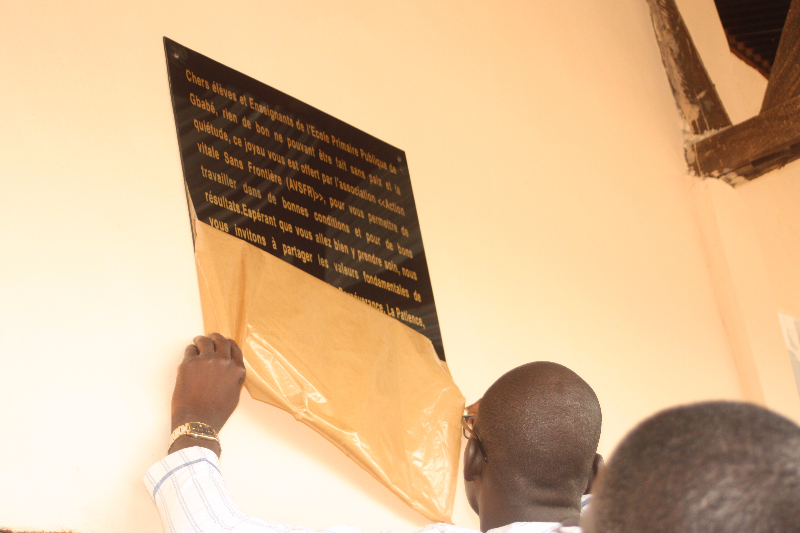 Chers élèves et Enseignants de l'Ecole Primaire Publique de
Gbabé, rien de bon ne pouvant être fait sans paix et la
quiétude, ce joyau vous est offert par l'association <<Action
vitale Sans Frontière (AVSFR)>>, pour vous permettre de
travailler dans de bonnes conditions et pour de bons
résultats.Espérant que vous allez bien y prendre soin, nous
vous invitons à partager les valeurs fondamentales de
La Patience,